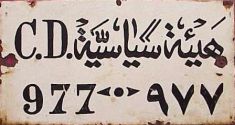 C.D. هيئة سياسية
977 ٩٧٧